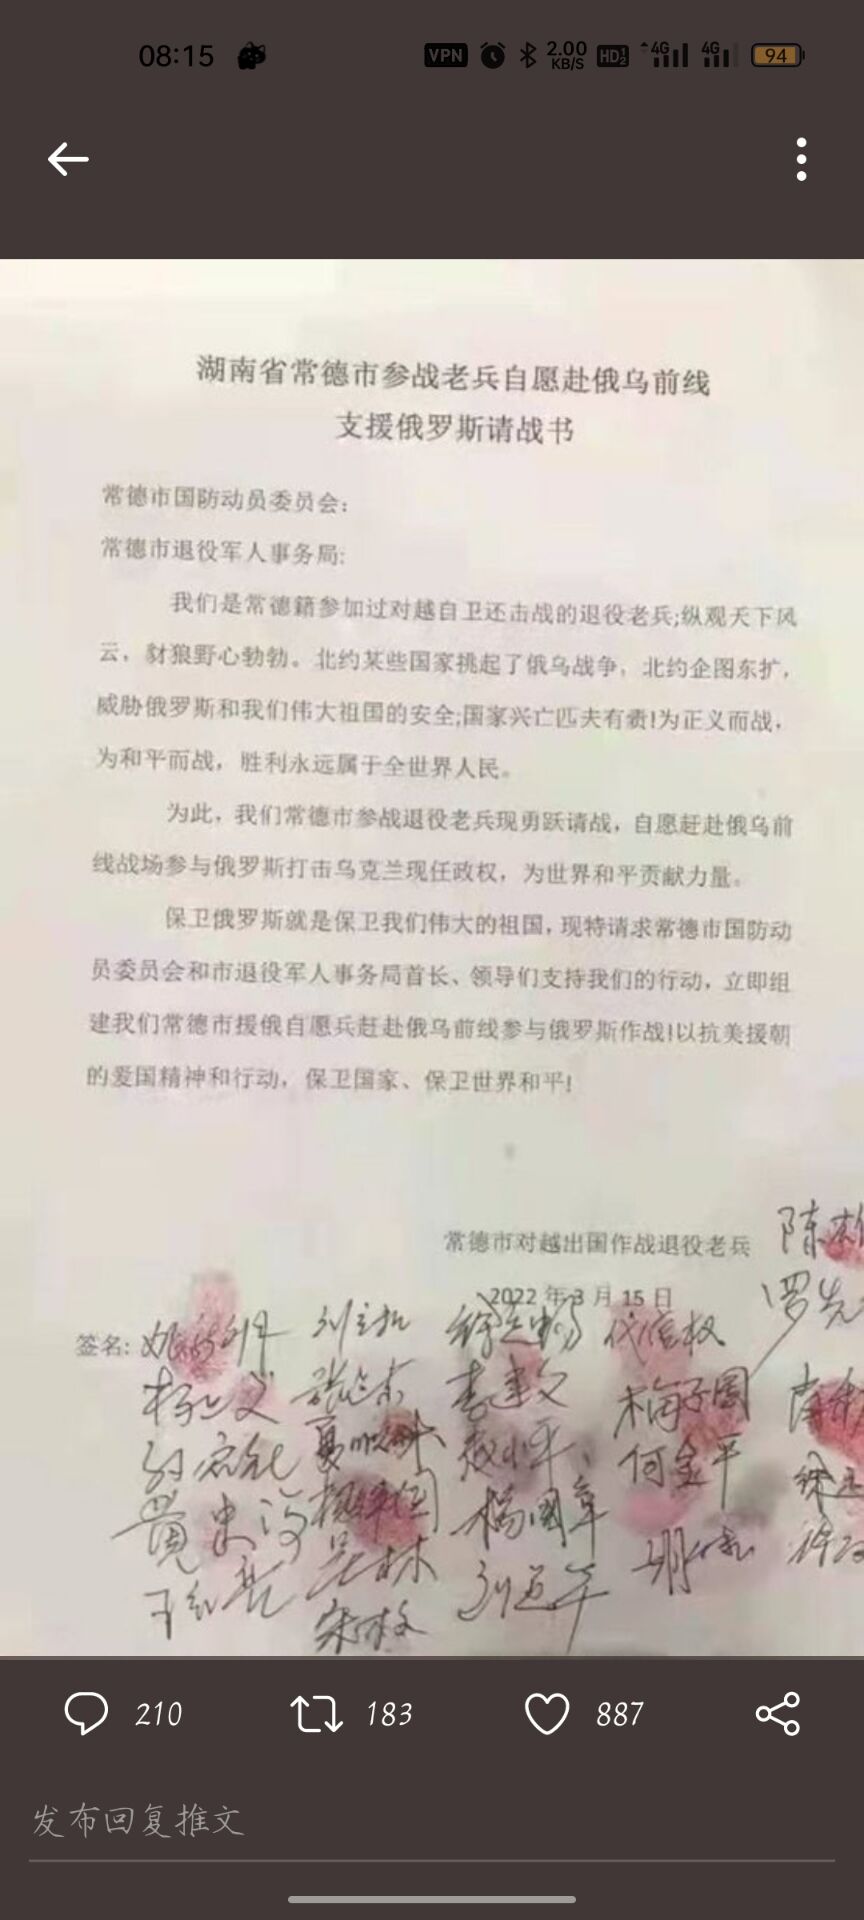 08:15
VPN
2.00
KB/S
HD 1 2
4G
4G
94
湖南省常德市参战老兵自愿赴俄乌前线
支援俄罗斯请战书
常德市国防动员委员会：
常德市退役军人事务局:
我们是常德籍参加过对越自卫还击战的退役老兵;纵观天下风
云，豺狼野心勃勃。北约某些国家挑起了俄乌战争，北约企图东扩，
威胁俄罗斯和我们伟大祖国的安全;国家兴亡匹夫有责!为正义而战，
为和平而战，胜利永远属于全世界人民。
为此，我们常德市参战退役老兵现勇跃请战，自愿赶赴俄乌前
线战场参与俄罗斯打击乌克兰现任政权，为世界和平贡献力量。
保卫俄罗斯就是保卫我们伟大的祖国，现特请求常德市国防动
员委员会和市退役军人事务局首长、领导们支持我们的行动，立即组
建我们常德市援俄自愿兵赶赴俄乌前线参与俄罗斯作战!以抗美援朝
的爱国精神和行动，保卫国家、保卫世界和平!
常德市对越出国作战退役老兵
2022 年 3 月 15 日
签名:
李建文
梅子国
何金平
杨国章
210
183
887
发布回复推文